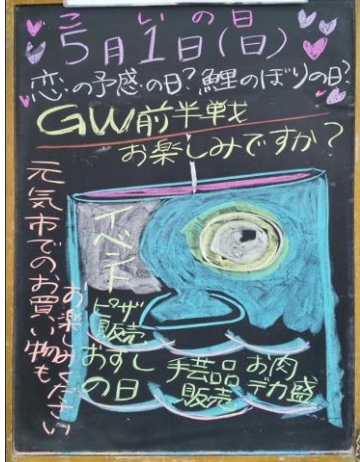 こいの日
5月1日(日)
恋の予感の日?鯉のぼりの日?
GW前半戦
お楽しみですか?
元気市でのお買い物も
お楽しみください
イベント
ピザ
販売
おすし
の日
手芸品
販売
お肉
デカ盛